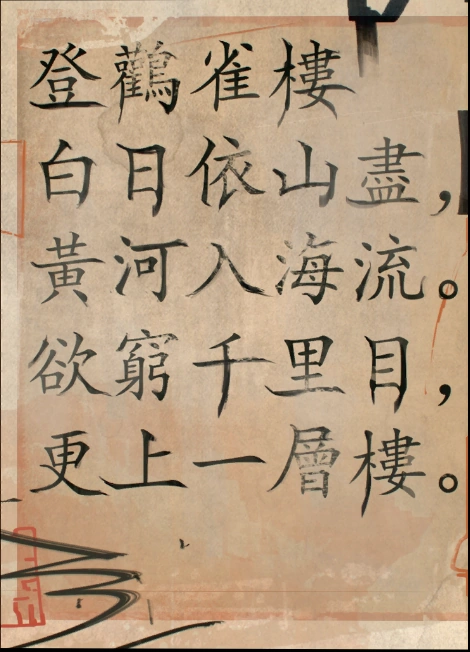 登鸛雀樓
白日依山盡，
黃河入海流。
欲窮千里目，
更上一層樓。